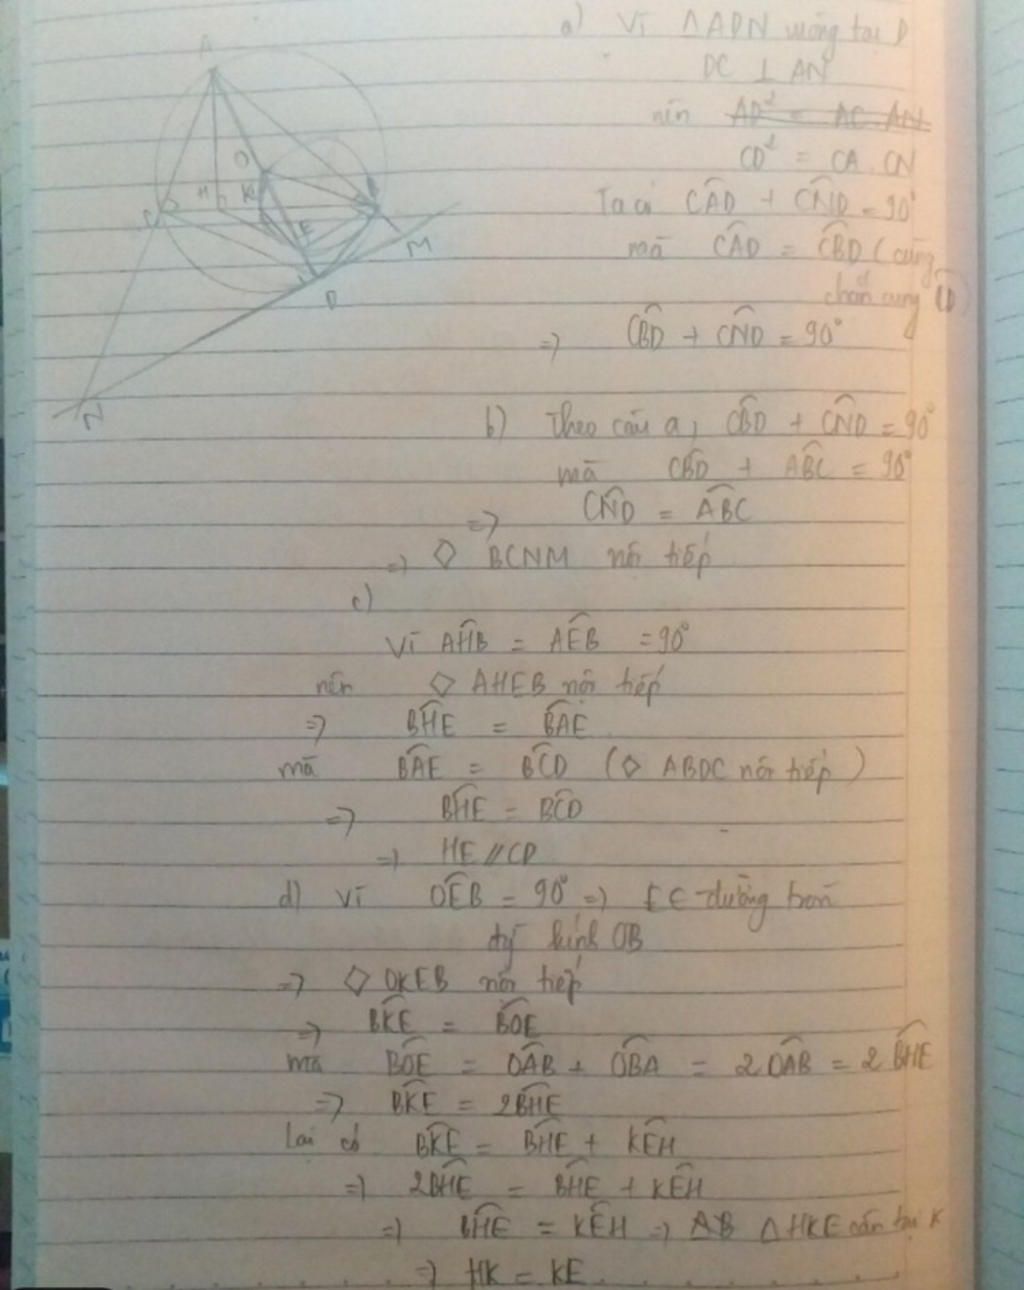 a) Vì △ADN vuông tại D
DC ⊥ AN
nên AD² = AC . AN
CD² = CA . CN
Ta có CAD + CND = 90°
mà CAD = CBD (cùng
chắn cung CD)
=> CBD + CND = 90°
b) Theo câu a, CBD + CND = 90°
mà CBD + ABC = 90°
=> CND = ABC
=> ◇ BCNM nội tiếp
c)
Vì AHB = AEB = 90°
nên ◇ AHEB nội tiếp
=> BHE = BAE
mà BAE = BCD (◇ ABDC nội tiếp)
=> BHE = BCD
=> HE // CD
d) Vì OEB = 90° => E ∈ đường tròn
đg kính OB
=> ◇ OKEB nội tiếp
=> BKE = BOE
mà BOE = OAB + OBA = 2 OAB = 2 BHE
=> BKE = 2BHE
Lại có BKE = BHE + KEH
=> 2BHE = BHE + KEH
=> BHE = KEH => △HKE cân tại K
=> HK = KE
A
O
H
K
C
E
M
D
N